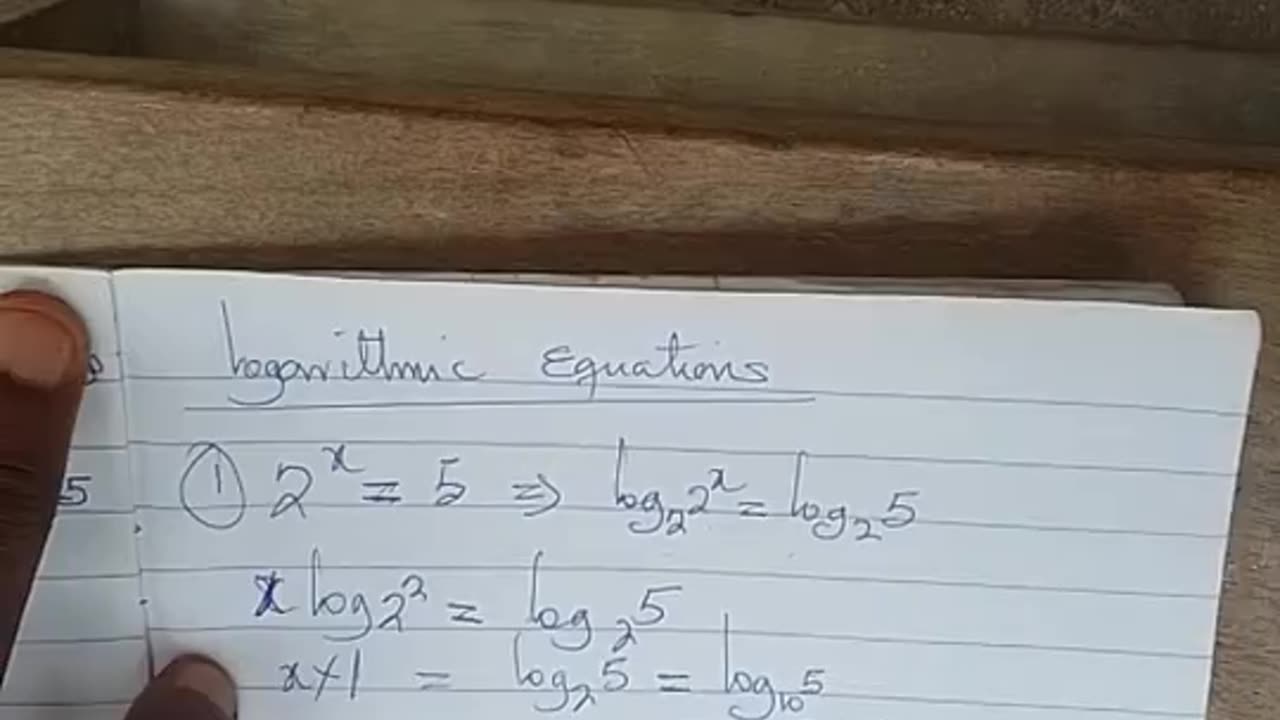 Logarithmic Equations
5 ① 2^x = 5 ⇒ log₂2^x = log₂5
x log₂2 = log₂5
x×1 = log₂5 = log₁₀5